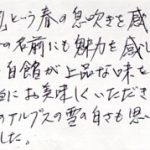 という春の息吹を感
の名前にも魅力を感じ
白餡が上品な味を
当にお美味しくいただき
のアルプスの雪の白さも思い
した。